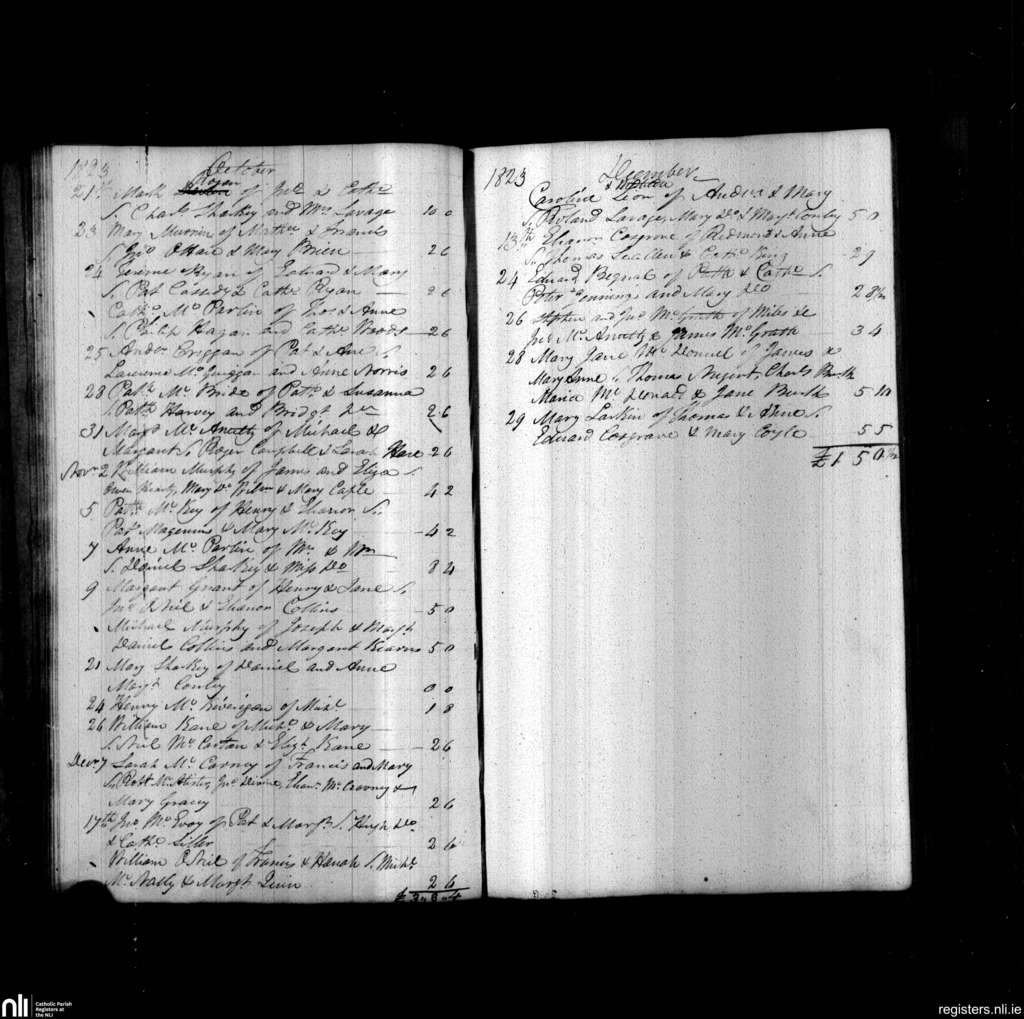 1823 October
Hogan
21st Mark of Jno & Cathe
S. Chas Sharkey and Mrs Savage 10 0
23 Mary Murrin of Mathw &
S. Jno OHare & Mary Brien 2 6
24 Jerome Ryan of Edward & Mary
S. Pat Cassidy & Cathe Ryan 2 6
Cathe Mc Partin of Thos & Anne
S. Philip Hagan and Cathe Woods 2 6
25 Andw Griggan of Pat & Anne S.
Lawrence Mc Guiggan and Anne Norris 2 6
28 Patk Mc Bride of Patk & Susanna
S. Patk Harvey and Bridgt Do 2 6
31 Margt Mc Anulty of Michael &
Margaret S. Roger Campbell & Sarah Hare 2 6
Novr 2 William Murphy of James and Eliza S.
Owen Hearty, Mary & Mary Caple 4 2
5 Patk Mc Key of Henry & Elianor S.
Patk Magennis & Mary Mc Key 4 2
7 Anne Mc Partin of Mr & Mrs
S. Daniel Sharkey & Miss Do 8 4
9 Margaret Grant of Henry & Jane S.
Jno ONeil & Elianor Collins 5 0
Michael Murphy of Joseph & Margt
Daniel Collins and Margaret Kearns 5 0
21 Mary Sharkey of Daniel and Anne
Margt Conley 0 0
24 Henry Mc of Michl 1 8
26 William Kane of Michl & Mary
S. Neil Mc Cartan & Elizh Kane 2 6
Decr 7 Sarah Mc Carney of Francis and Mary
S. Robt Mc Alister, Jno Devine, Elianr Mc Cravney &
Mary Gracey 2 6
17th Jno Mc Evoy of Pat & Margt S. Hugh Do
& Cathe 2 6
William ONeil of Francis & Hanah S. Michl
Mc Nally & Margt Quin 2 6
£ 3 " 8 " 4
1823 December
Caroline Leon of Andrew & Mary
S. Roland Savage, Mary Do & Margt Conley 5 0
13th Elianor Cosgrove of Redmond & Anne
S. Thomas & Cathe King 2 9
24 Edward Begnal of Patk & Cathe S.
Peter Jennings and Mary Do 2 8½
26 Stephen and Jno McGrath of Miles &c
Jno Mc Anulty & James McGrath 3 4
28 Mary Jane Mc Donnel of James &
Mary Anne S. Thomas Nugent, Charls Burk
Maria Mc Donald & Jane Burk 5 10
29 Mary Larkin of Thomas & Anne S.
Edward Cosgrave & Mary Coyle 5 5
£1 5 0½
nli
Catholic Parish
Registers at
the NLI
registers.nli.ie